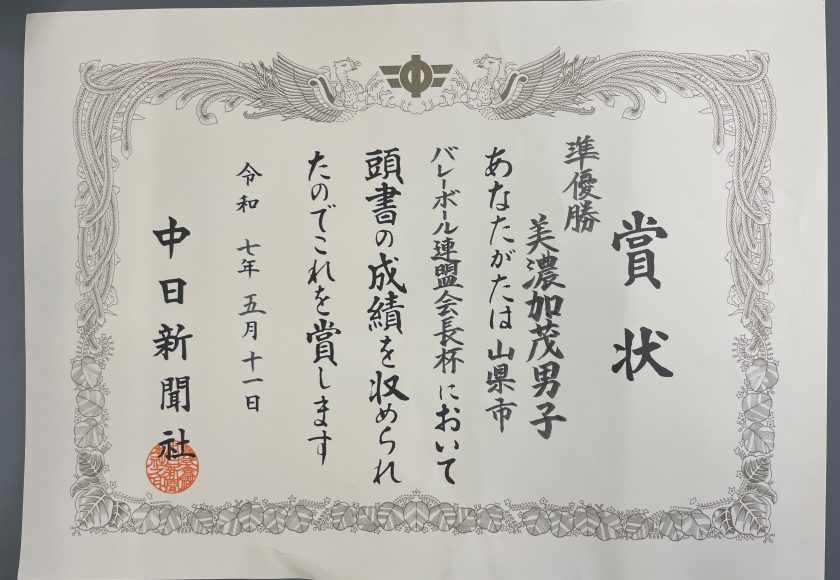 賞状
準優勝
美濃加茂男子
あなたがたは山県市
バレーボール連盟会長杯において
頭書の成績を収められ
たのでこれを賞します
令和七年五月十一日
中日新聞社